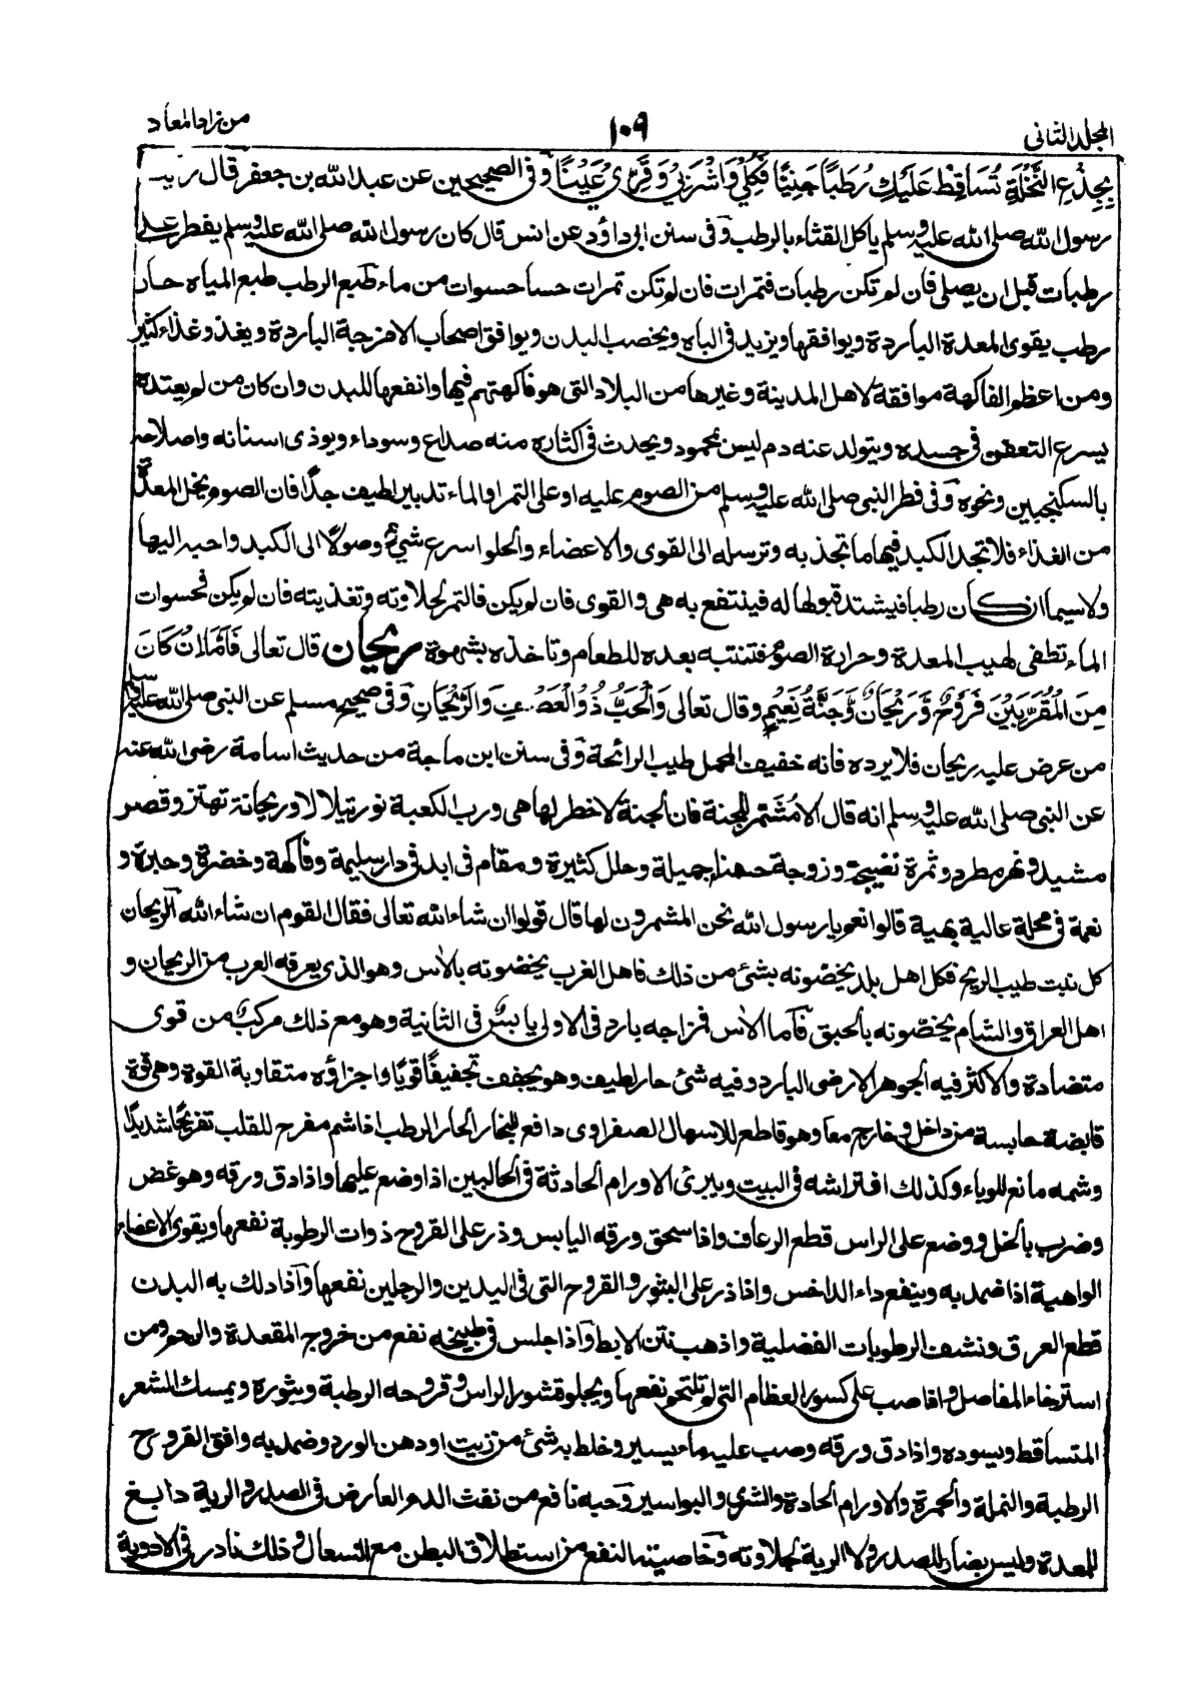 المجلد الثانى
١٠٩
من زاد المعاد
بِجِذْعِ النَّخْلَةِ تُسَاقِطْ عَلَيْكِ رُطَبًا جَنِيًّا فَكُلِيْ وَاشْرَبِيْ وَقَرِّيْ عَيْنًا وفى الصحيحين عن عبد الله بن جعفر قال رايت
رسول الله صلى الله عليه وسلم ياكل القثاء بالرطب وفى سنن ابى داؤد عن انس قال كان رسول الله صلى الله عليه وسلم يفطر على
رطبات قبل ان يصلى فان لم تكن رطبات فتمرات فان لم تكن تمرات حسا حسوات من ماء طبع الرطب طبع المياه حار
رطب يقوى المعدة الباردة ويوافقها ويزيد فى الباه ويخصب البدن ويوافق اصحاب الامزجة الباردة ويغذو غذاء كثيرا
ومن اعظم الفاكهة موافقة لاهل المدينة وغيرها من البلاد التى هو فاكهتهم فيها وانفعها للبدن وان كان من لم يعتده
يسرع التعفن فى جسده ويتولد عنه دم ليس بمحمود ويحدث فى اكثاره منه صداع وسوداء ويوذى اسنانه واصلاحه
بالسكنجبين ونحوه وفى فطر النبى صلى الله عليه وسلم من الصوم عليه او على التمر او الماء تدبير لطيف جدًا فان الصوم يخلى المعدة
من الغذاء فلا تجد الكبد فيها ما تجذ به وترسله الى القوى والاعضاء والحلو اسرع شئ وصولًا الى الكبد واحبه اليها
ولاسيما ان كان رطبا فيشتد قبولها له فينتفع به هى والقوى فان لم يكن فالتمر لحلاوته وتغذيته فان لم يكن فحسوات
الماء تطفى لهيب المعدة وحرارة الصوم فتنتبه بعده للطعام وتاخذه بشهوة ريحان قال تعالى فَاَمَّا اِنْ كَانَ
مِنَ الْمُقَرَّبِيْنَ فَرَوْحٌ وَّرَيْحَانٌ وَّجَنَّةُ نَعِيْمٍ وقال تعالى وَالْحَبُّ ذُو الْعَصْفِ وَالرَّيْحَانِ وفى صحيح مسلم عن النبى صلى الله عليه وسلم
من عرض عليه ريحان فلا يرده فانه خفيف المحمل طيب الرائحة وفى سنن ابن ماجة من حديث اسامة رضى الله عنه
عن النبى صلى الله عليه وسلم انه قال الا مُشَمِّر للجنة فان الجنة لا خطر لها هى ورب الكعبة نور يتلألأ وريحانة تهتز وقصر
مشيد ونهر مطرد وثمرة نضيجة وزوجة حسناء جميلة وحلل كثيرة ومقام فى ابد فى دار سليمة وفاكهة وخضرة وحبرة و
نعمة فى محلة عالية بهية قالوا نعم يا رسول الله نحن المشمرون لها قال قولوا ان شاء الله تعالى فقال القوم ان شاء الله الريحان
كل نبت طيب الريح فكل اهل بلد يخصّونه بشئ من ذلك فاهل الغرب يخصّونه بالاٰس وهو الذى يعرفه العرب من الريحان و
اهل العراق والشام يخصّونه بالحبق فاما الاٰس فمزاجه بارد فى الاولى يابس فى الثانية وهو مع ذلك مركب من قوى
متضادة والاكثر فيه الجوهر الارضى البارد وفيه شئ حار لطيف وهو يجفف تجفيفًا قويًا واجزاؤه متقاوبة القوة وهى قوة
قابضة حابسة من داخل وخارج معا وهو قاطع للاسهال الصفراوى دافع للبخار الحار الرطب اذا شم مفرح للقلب تفريحًا شديدًا
وشمه مانع للوباء وكذلك افتراشه فى البيت ويبرئ الاورام الحادثة فى الحالبين اذا وضع عليها واذا دق ورقه وهو غض
وضرب بالخل ووضع على الراس قطع الرعاف واذا سحق ورقه اليابس وذر على القروح ذوات الرطوبة نفعها ويقوى الاعضاء
الواهية اذا ضمد به وينفع داء الداخس واذا ذر على البثور والقروح التى فى اليدين والرجلين نفعها واذا دلك به البدن
قطع العرق ونشف الرطوبات الفضلية واذهب نتن الابط واذا جلس فى طبيخه نفع من خروج المقعدة والرحم ومن
استرخاء المفاصل واذا صب على كسور العظام التى لم تلتحم نفعها ويجلو قشور الراس وقروحه الرطبة وبثوره ويمسك الشعر
المتساقط ويسوده واذا دق ورقه وصب عليه ماء يسير وخلط به شئ من زيت او دهن الورد وضمد به وافق القروح
الرطبة والنملة والحمرة والاورام الحادة والشرى والبواسير وحبه نافع من نفث الدم العارض فى الصدر والرية دابغ
للمعدة وليس بضار للصدر ولا الرية لحلاوته وخاصيته النفع من استطلاق البطن مع السعال وذلك نادر فى الادوية